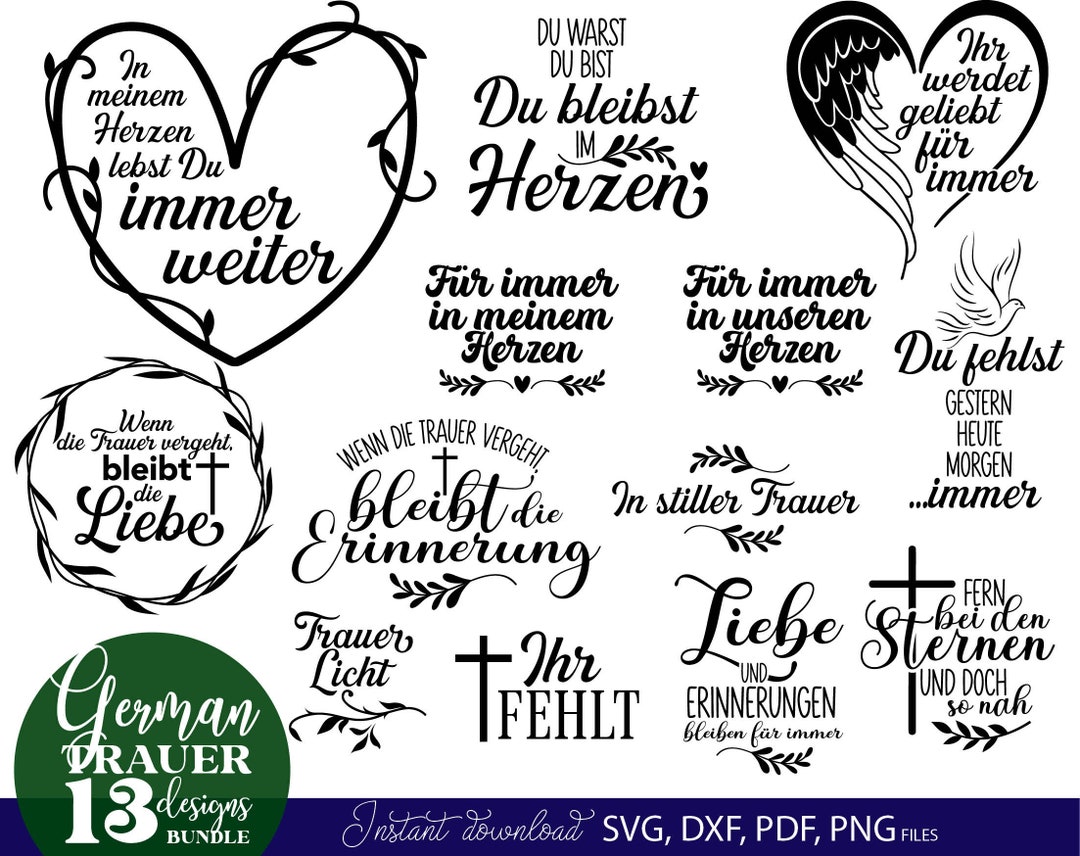 In
meinem
Herzen
lebst Du
immer
weiter
DU WARST
DU BIST
Du bleibst
IM
Herzen
Ihr
werdet
geliebt
für
immer
Für immer
in meinem
Herzen
Für immer
in unseren
Herzen
Du fehlst
GESTERN
HEUTE
MORGEN
...immer
Wenn
die Trauer vergeht,
bleibt
die
Liebe
WENN DIE TRAUER VERGEHT,
bleibt die
Erinnerung
In stiller Trauer
Trauer
Licht
Ihr
FEHLT
Liebe
UND
ERINNERUNGEN
bleiben für immer
FERN
bei den
Sternen
UND DOCH
so nah
German
TRAUER
13 designs
BUNDLE
Instant download SVG, DXF, PDF, PNG FILES